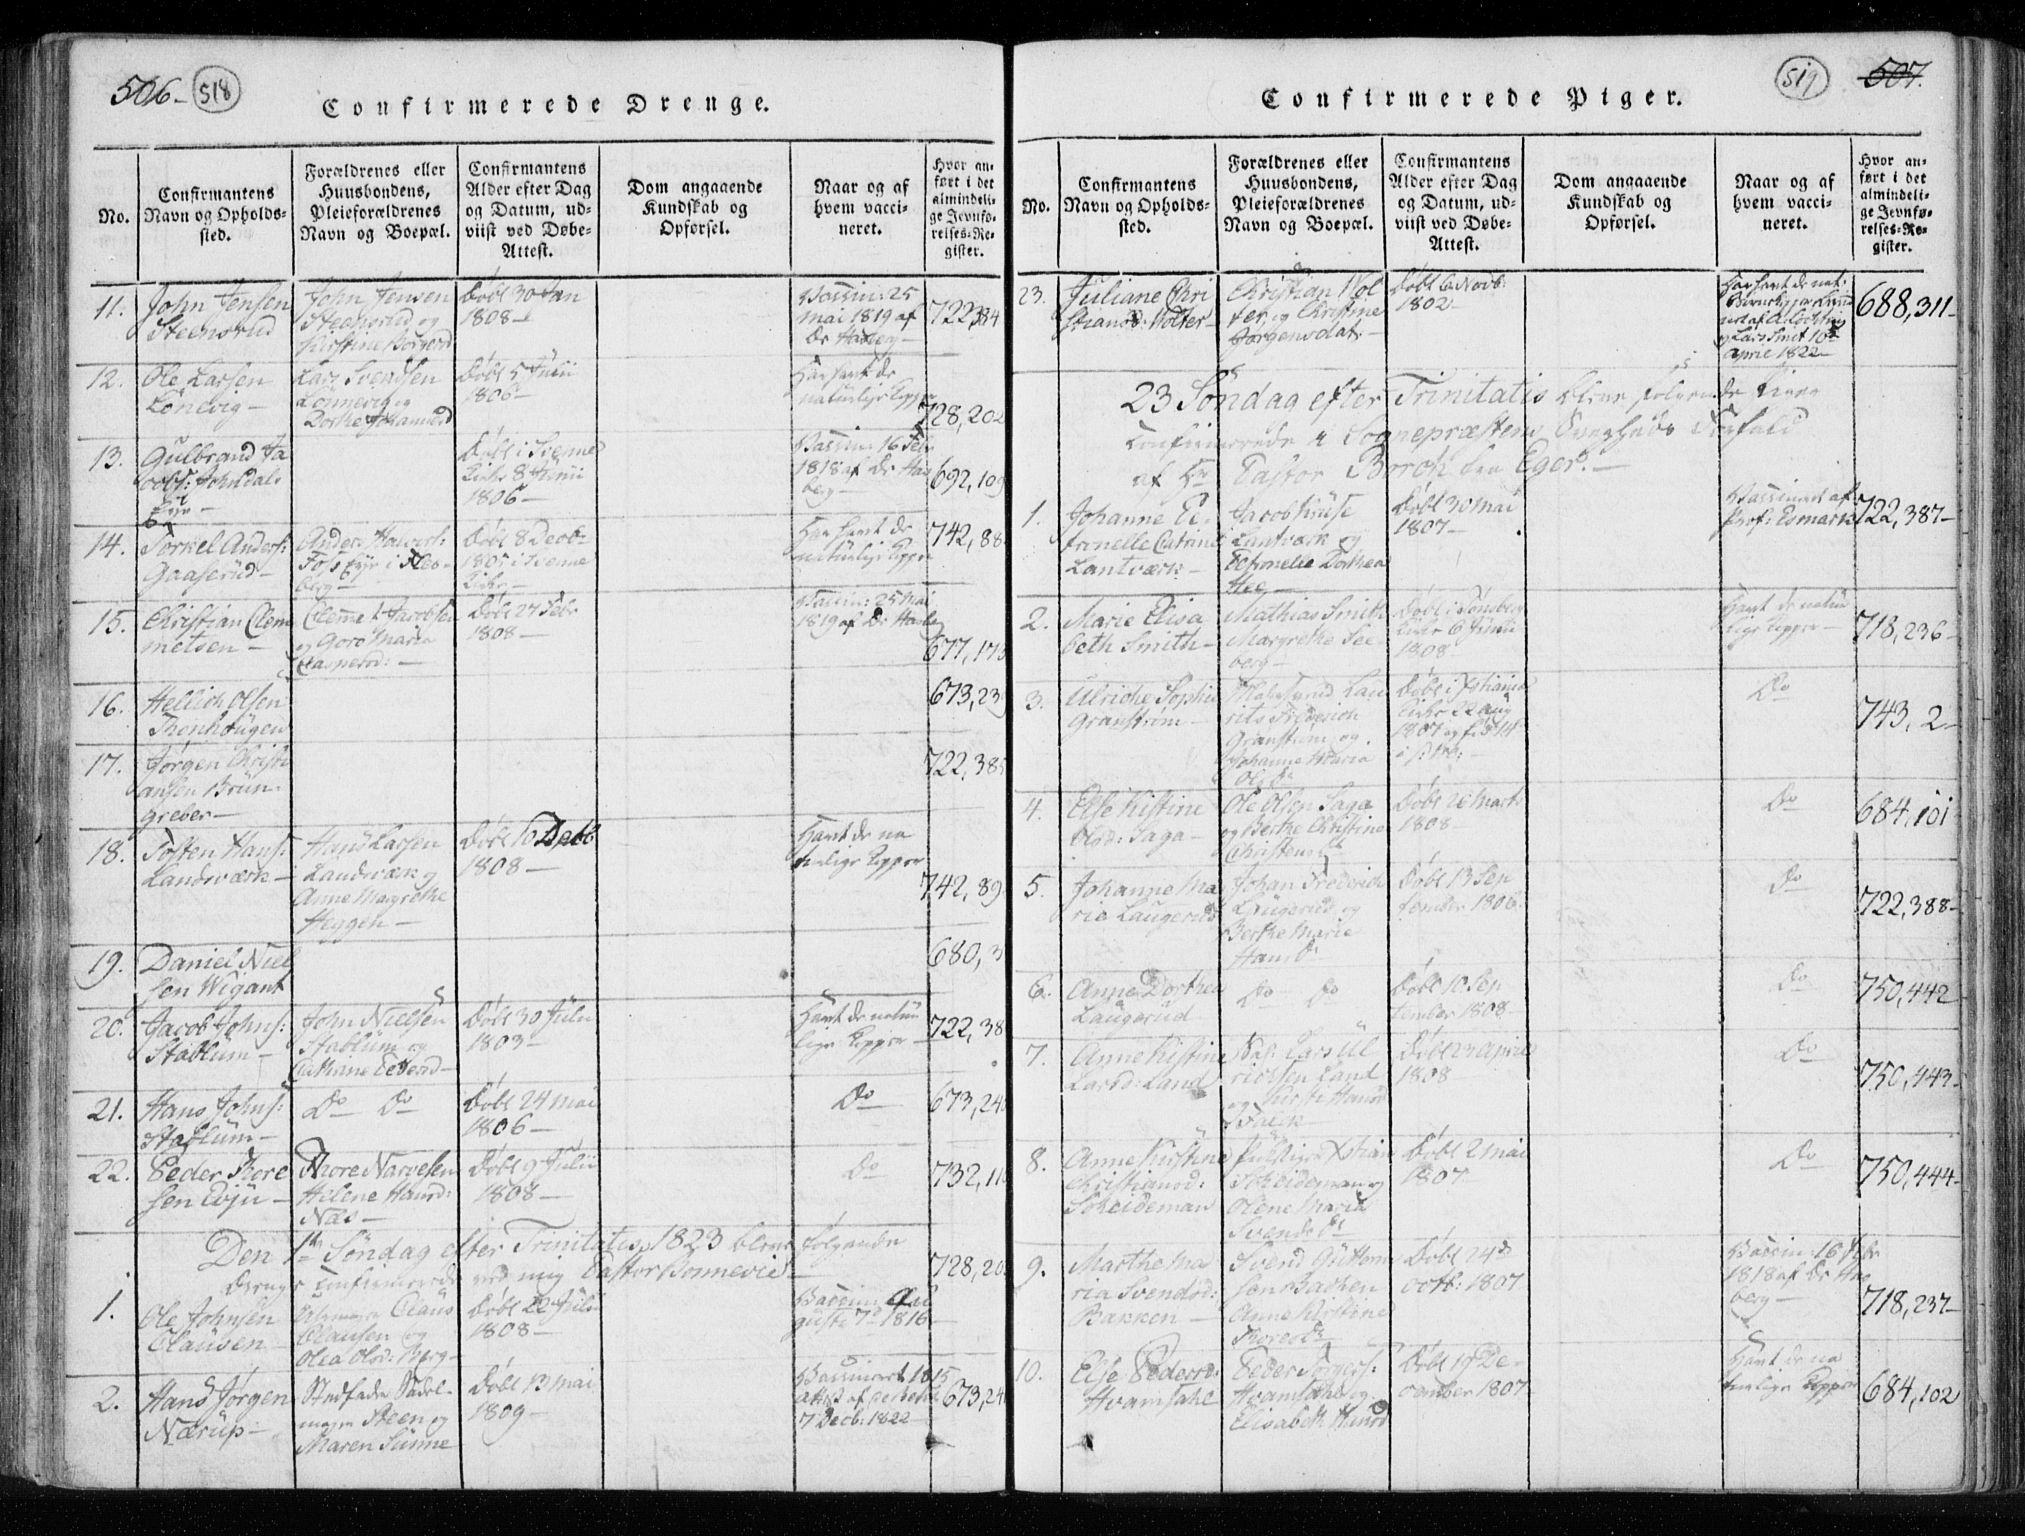 506- 518
Confirmerede Drenge.
No.
Confirmantens
Navn og Opholds-
sted.
Forældrenes eller
Huusbondens,
Pleieforældrenes
Navn og Boepæl.
Confirmantens
Alder efter Dag
og Datum, ud-
viist ved Døbe-
Attest.
Dom angaaende
Kundskab og
Opførsel.
Naar og af
hvem vacci-
neret.
Hvor an-
ført i det
almindeli-
ge Jevnfø-
relses-Re-
gister.
11. John Jensen
Steensrud
John Jensen
Steensrud og
Døbt 30 Jan
1808-
Vaccin: 25
Mai 1819 af
Dr
722,384
12. Ole Larsen
Lönevig-
Lars Svendsen
Lönnevig og
Dorthe
Døbt 5 Julii
1806-
Har havt de
naturlige Kopper
728,202
13. Gulbrand Ja
cobs: Johndals
Eje-
Døbt i Svenne
Kirke 8 Junii
1806-
Vaccin: 16 Feb
1818 af Dr Has
berg-
692,109
14. Torkel Anders:
Gaaserud-
Anders
Foss Eje i Fles-
berg-
Døbt 8 Decb:
1805 i Svenne
Kirke-
Har havt de
naturlige Kopper
742,88
15. Christian Clem
metsen-
Clemet Jacobsen
og Goro Maria
Døbt 27 Febr
1808-
Vaccin: 25 Mai
1819 af Dr Hasbe
677,178
16. Hellich Olsen
Thonhougen
673,239
17. Jørgen Christi
ansen Brün-
greber-
722,385
18. Tosten Hans:
Landværk-
Hans Larsen
Landværk og
Anne Margrethe
Heggen-
Døbt 10 Decb
1808-
Havt de na
turlige Kopper
742,89
19. Daniel Niel
sen Wigant
680,3
20. Jacob Johns:
Stablum-
John Nielsen
Stablum og
Cathrine Pedersd-
Døbt 30 Julii
1803-
Havt de natur
lige Kopper-
722,38
21. Hans Johns:
Stablum-
Do Do
Døbt 24 Mai
1806-
Do
673,240
22. Peder Thore
sen Evju-
Thore Narvesen
Helene Hansd:
Næs-
Døbt 9 Julii
1808-
Do
732,11
Den 1te Søndag efter Trinitatis 1823 bleve følgende
Drenge confirmerede ved mig Pastor Bonnevie
728,20
1. Ole Johnsen
Clausen-
Claus
Clausen og
Olea Olsd: Berg-
Døbt 22 Julii
1808-
Vaccin: Au
gusti 7de 1816-
2. Hans Jørgen
Nærup-
Stedfader Sadel-
mager Steen og
Maren
Døbt 13 Mai
1809-
Vaccineret 1815
Attest af
7 Decb: 1822-
673,24
519 507.
Confirmerede Piger.
No.
Confirmantens
Navn og Opholds-
sted.
Forældrenes eller
Huusbondens,
Pleieforældrenes
Navn og Boepæl.
Confirmantens
Alder efter Dag
og Datum, ud-
viist ved Døbe-
Attest.
Dom angaaende
Kundskab og
Opførsel.
Naar og af
hvem vacci-
neret.
Hvor an-
ført i det
almindeli-
ge Jevnfø-
relses-Re-
gister.
23. Juliane Chri
stiansd: Wolter-
Christian Wol
ter, og Christine
Jørgensdat:
Døbt 6 Novb:
1802-
Har havt de nat:
Lars Smit 16de
April 1822-
688,311-
23 Søndag efter Trinitatis bleve følgende Piger
confirmerede i Sognepræstens Svagheds Forfald
af Hr Pastor Borch fra Eger.-
1. Johanne Pe-
tronelle Catrine
Lantværk-
Jacob Huse
Lantværk og
Petronelle Dorthea
Døbt 30 Mai
1807-
Vaccineret af
Prof: Esmark
722,387-
2. Marie Elisa
beth Smith-
Mathias Smith
Margrethe See-
berg-
Døbt i Tönsberg
Kirke 6 Junii
1808
Havt de natur
lige Kopper-
718,236-
3. Ulriche Sophie
Granstrøm-
Lau
rits Friderich
Granstrøm og
Johanne Maria
Ols Dr
Døbt i
Kirke 22 Aug
1807 og født 14
Do
743,2-
4. Else Kistine
Olsd: Saga-
Ole Olsen Saga
og Berthe Christine
Christens Dr
Døbt 26 Marts
1808-
Do
684,101
5. Johanne Ma
rie Laugerud
Johan Frederich
Laugerud og
Berthe Marie
Hans Dr
Døbt 13 Sep
tember 1806
Do
722,388-
6. Anne Dorthea
Laugerud
Do Do
Døbt 10 Sep
tember 1808-
Do
750,442
7. Anne Kistine
Larsd: Land
Lars Ul
richsen Land
og Kirsti Hansd
Døbt 23 April
1808
Do
750,443-
8. Anne Kirstine
Christiansd:
Scheideman
Xstian
Scheideman og
Olene Maria
Svends Dr
Døbt 2 Mai
1807-
Do
750,444-
9. Marthe Ma
ria Svendsd:
Bakken-
Svend Guttorm
sen Bakken
Anne Kirstine
Døbt 24de
Octb: 1807
Vaccin: 16 Febr
1818 af Dr Has
berg-
718,237-
10. Else Pedersd:
Hvamsahl
Peder
Hvamsahl og
Elisabeth Hansd
Døbt 19 De-
cember 1807
Havt de na
turlige Kopper
684,102